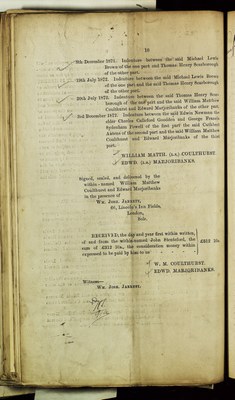 16
9th December 1871. Indenture between the said Michael Lewis
Brown of the one part and Thomas Henry Scarborough
of the other part.
19th July 1872. Indenture between the said Michael Lewis Brown
of the one part and the said Thomas Henry Scarborough
of the other part.
20th July 1872. Indenture between the said Thomas Henry Scar-
borough of the one part and the said William Matthew
Coulthurst and Edward Marjoribanks of the other part.
3rd December 1872. Indenture between the said Edwin Newman the
elder Charles Calleford Goulden and George Francis
Sydenham Powell of the first part the said Catherine
of the second part and the said William Matthew
Coulthurst and Edward Marjoribanks of the third
part.
WILLIAM MATTH. (L.S.) COULTHURST
EDWD. (L.S.) MARJORIBANKS.
Signed, sealed, and delivered by the
within-named William Matthew
Coulthurst and Edward Marjoribanks
in the presence of
Wm. John.
Lincoln's Inn Fields,
London,
Solr.
RECEIVED, the day and year first within written,
of and from the within-named John Shuteford, the
sum of £313 10s., the consideration money within
expressed to be paid by him to us
£313 10s
W. M. COULTHURST.
EDWD. MARJORIBANKS.
Witness—
Wm. John.